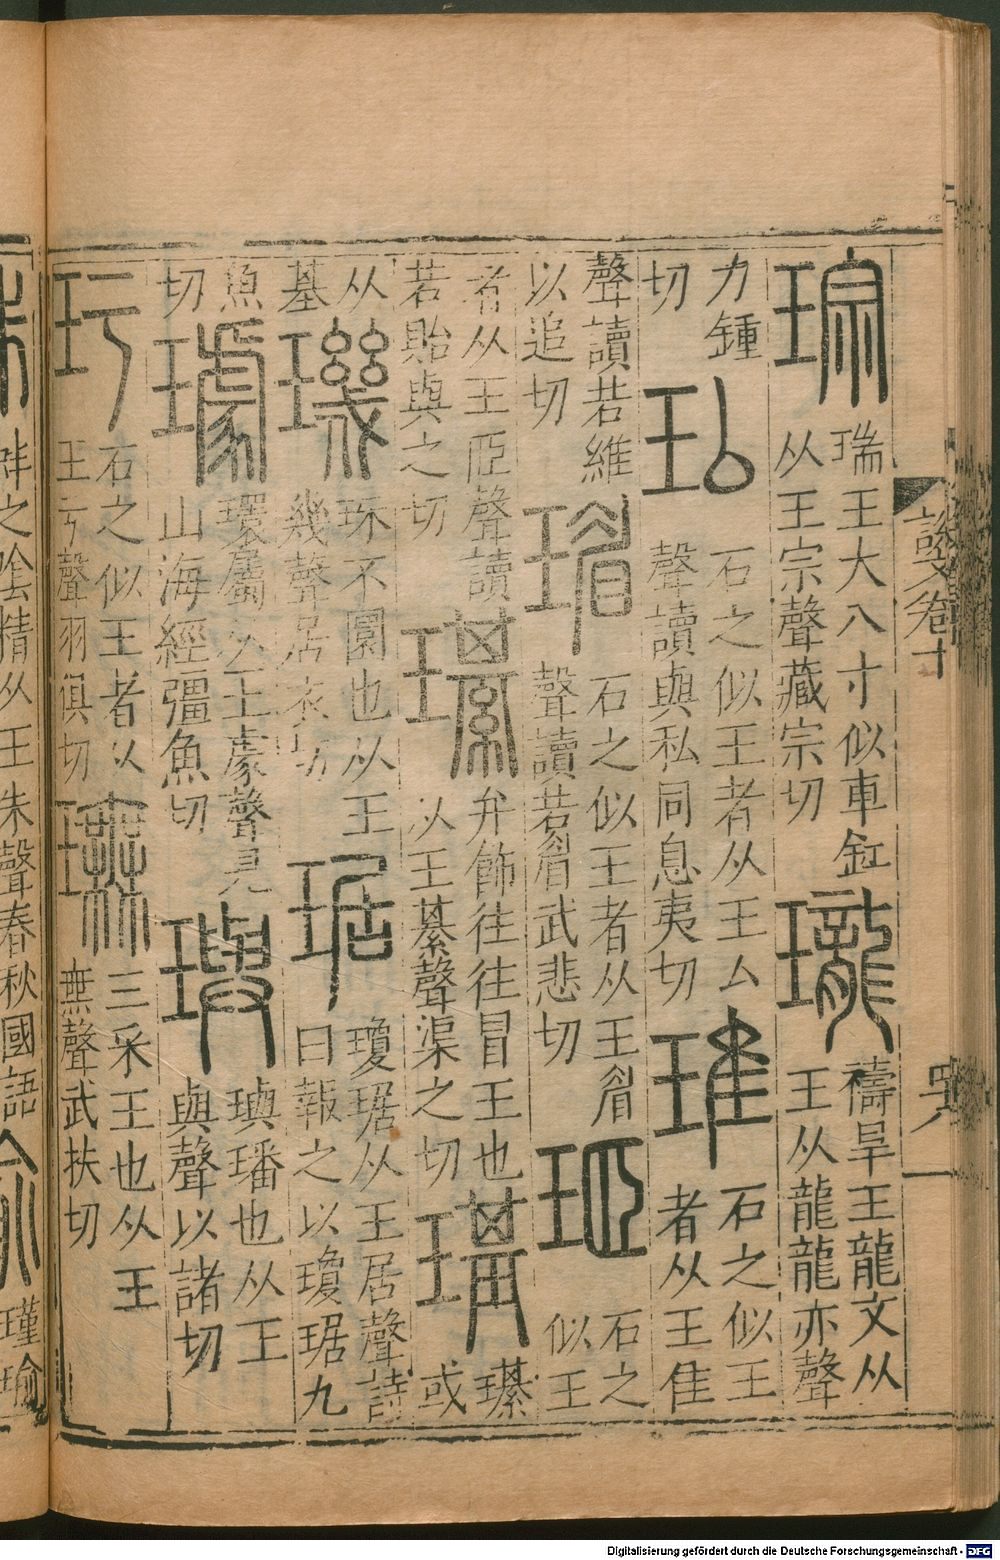 琮 瑞王大八寸似車釭从王宗聲藏宗切 瓏 禱旱王龍文从王从龍龍亦聲
力鍾切 玜 石之似王者从王厶聲讀與私同息夷切 琟 石之似王者从王隹
聲讀若維以追切 瑂 石之似王者从王眉聲讀若眉武悲切 𤥭 石之似王
者从王𦣞聲讀若貽與之切 璂 弁飾往往冒王也从王綦聲渠之切 璂 璂或
从基 璣 珠不圜也从王幾聲居衣切 琚 瓊琚从王居聲詩曰報之以瓊琚九
魚切 璩 環屬从王豦聲見山海經彊魚切 璵 璵璠也从王與聲以諸切
玗 石之似王者从王亏聲羽俱切 璑 三采王也从王無聲武扶切
蚌之陰精从王朱聲春秋國語
瑾瑜
說文卷十
Digitalisierung gefördert durch die Deutsche Forschungsgemeinschaft - DFG